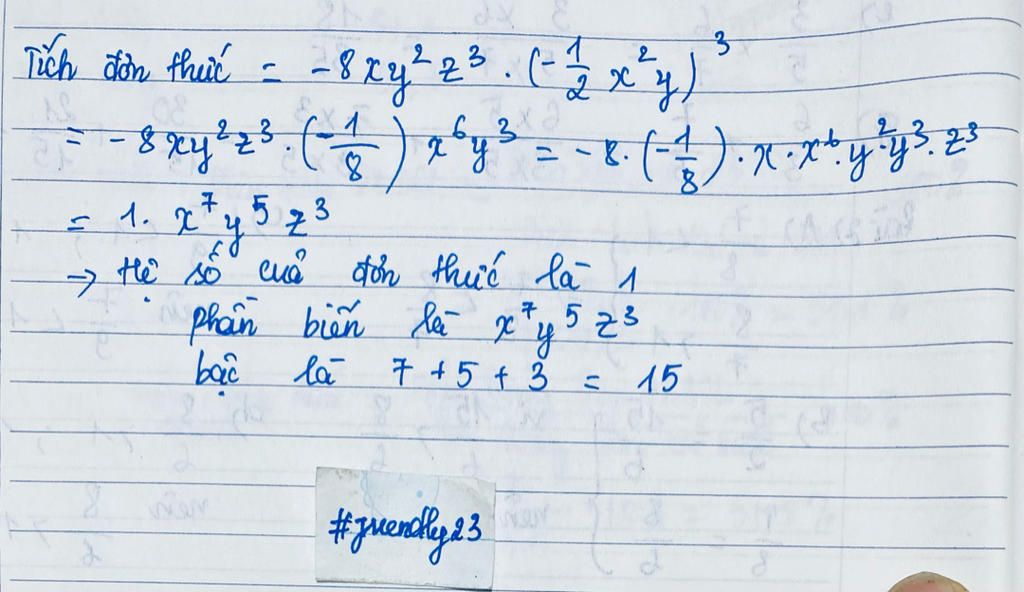 Tích đơn thức = -8xy²z³ . (-1/2 x²y)³
= -8xy²z³ . (-1/8) x⁶y³ = -8 . (-1/8) . x . x⁶ . y² . y³ . z³
= 1 . x⁷y⁵z³
→ Hệ số của đơn thức là 1
phần biến là x⁷y⁵z³
bậc là 7 + 5 + 3 = 15